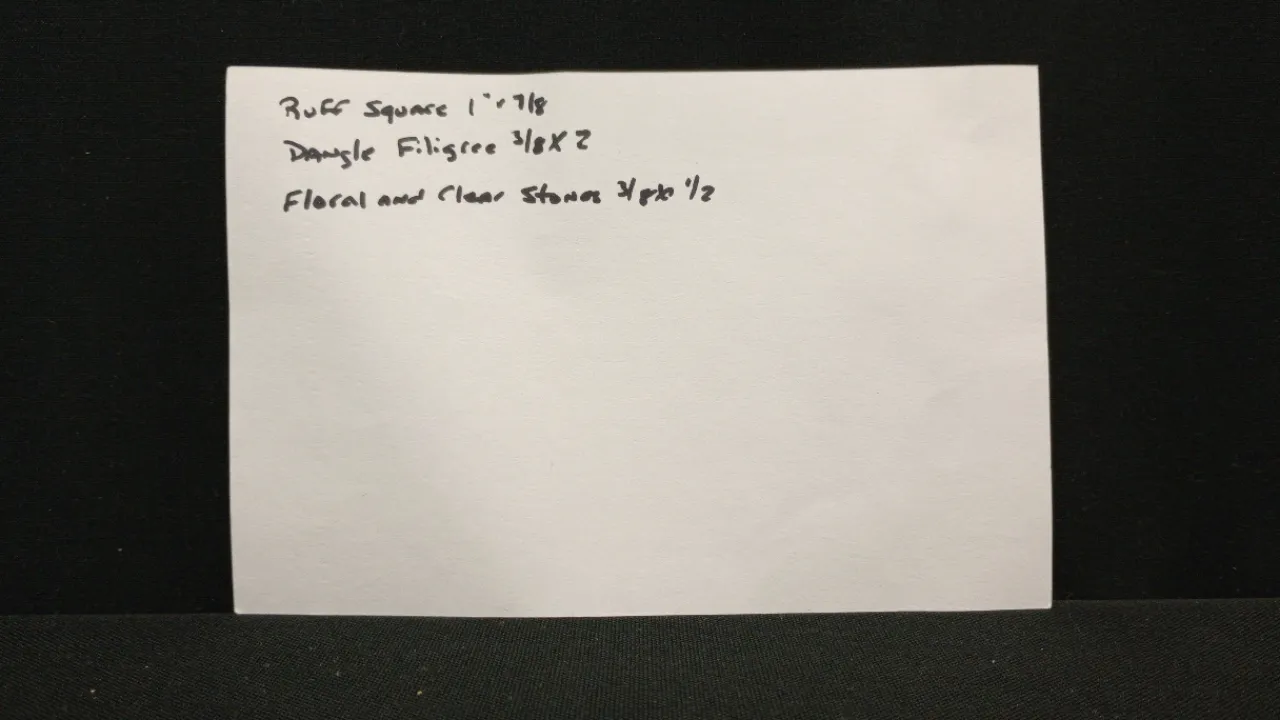 Ruff Square 1" x 7/8
Dangle Filigree 3/8 X 2
Floral and Clear Stones 3/8 x 1/2